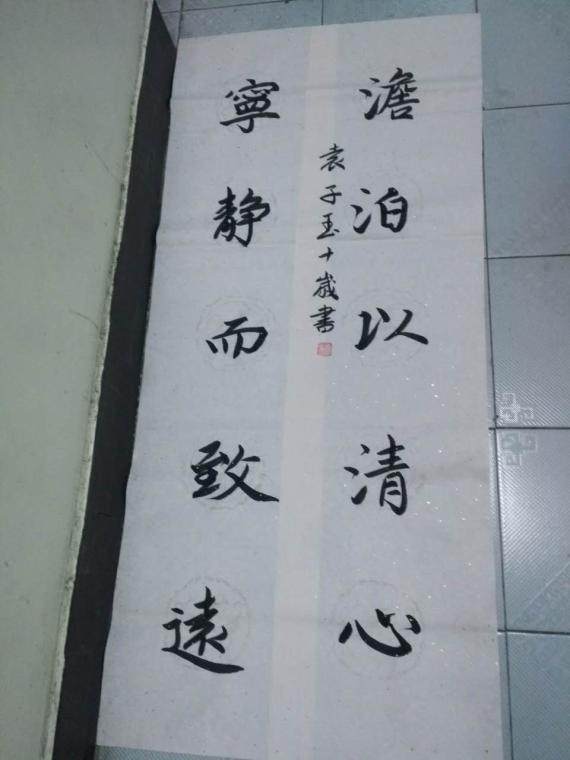 澹泊以清心
寧静而致遠
袁子玉十歲書